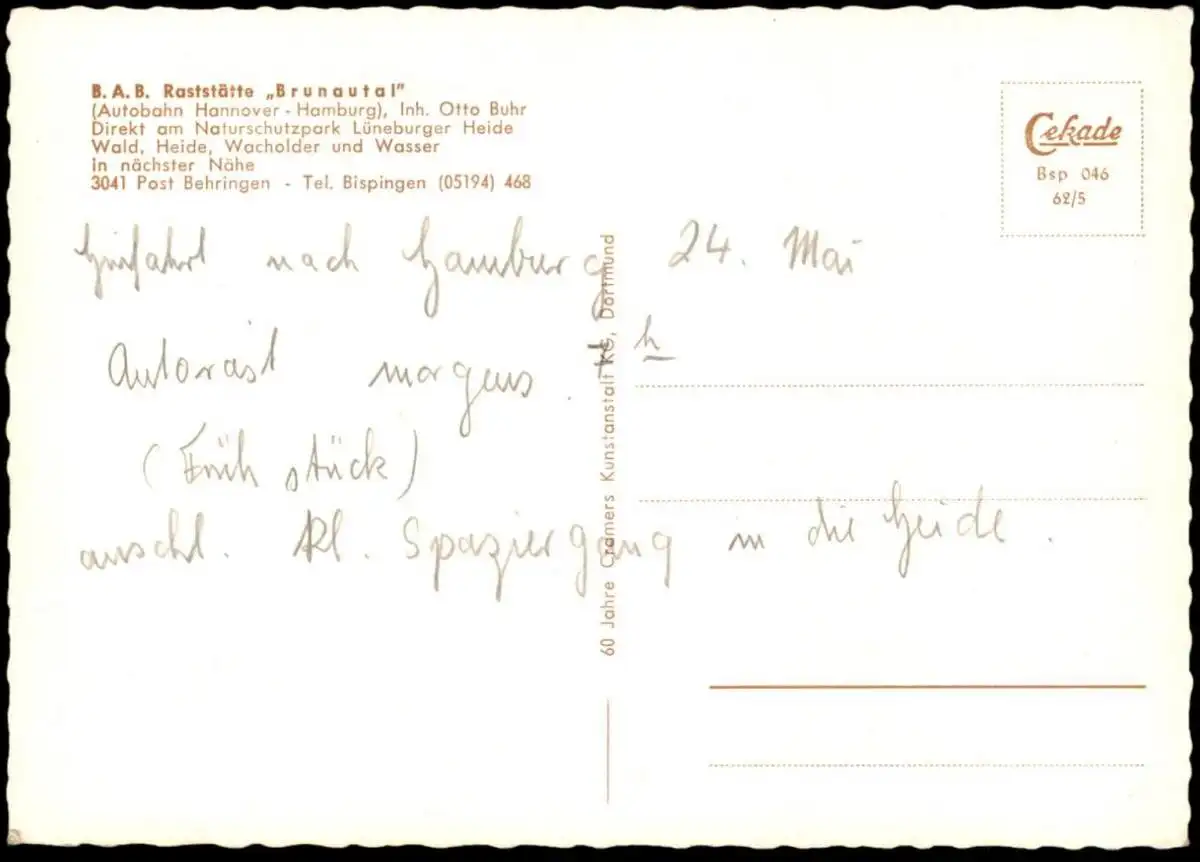 B.A.B. Raststätte „Brunautal"
(Autobahn Hannover - Hamburg), Inh. Otto Buhr
Direkt am Naturschutzpark Lüneburger Heide
Wald, Heide, Wacholder und Wasser
in nächster Nähe
3041 Post Behringen - Tel. Bispingen (05194) 468
Cekade
Bsp 046
62/5
Hinfahrt nach Hamburg 24. Mai
Autorast morgens 7 h
(Früh stück)
anschl. Kl. Spaziergang in die Heide.
60 Jahre Cramers Kunstanstalt KG, Dortmund